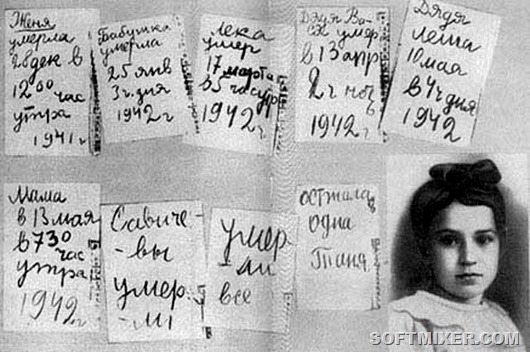 Женя
умерла
28 дек в
12 00 час
утра
1941 г
Бабушка
умерла
25 янв
3 ч. дня
1942 г
Лека
умер
17 марта
в 5 час утр
1942 г
Дядя Ва-
ся умер
в 13 апр
2 ч ноч
1942 г
Дядя
Леша
10 мая
в 4 ч дня
1942
Мама
в 13 мая
в 7 30
час
утра
1942 г
Савиче-
-вы
умер-
-ли
умер
-ли
все
осталась
одна
Таня
SOFTMIXER.COM